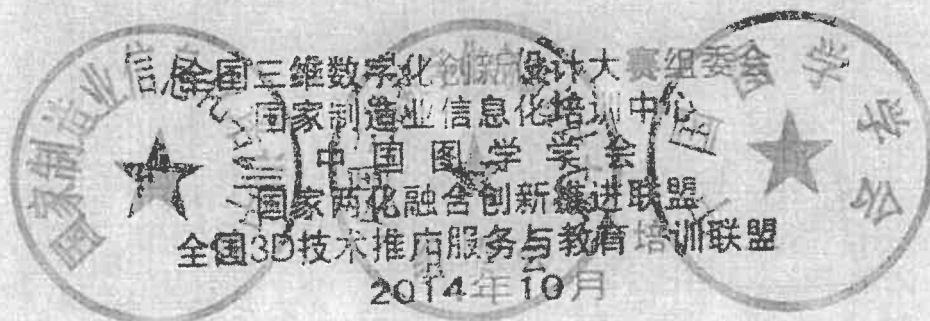 全国三维数字化创新设计大赛组委会
国家制造业信息化培训中心
中国图学学会
国家两化融合创新推进联盟
全国3D技术推广服务与教育培训联盟
2014年10月
国家制造业信息
国
学学会